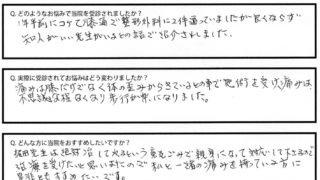 Q. どのようなお悩みで当院を受診されましたか？
1年半前にコケて膝痛で整形外科に2件通っていましたが良くならず
知人がいい先生がいるとの話でご紹介されました。
Q. 実際に受診されてお悩みはどう変わりましたか？
痛みは膝だけでなく体の歪みからきているとの事で施術を受け痛みは、
不思議な程なくなり歩行が楽になりました。
Q. どんな方に当院をおすすめしたいですか？
先生は絶対治して水るという意をこみで親身になって対応して下さるので
治療を受けたいと思いましたので私と一緒の痛みを持っている方に
おすすめたいです。